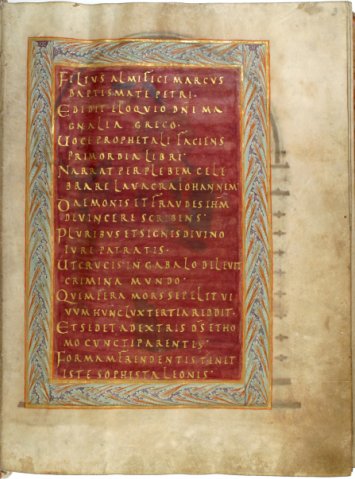 FILIUS ALMIFICI MARCUS
BAPTISMATE PETRI·
EDIDIT ELOQUIO DNI MA
GNALIA GRECO·
UOCE PROPHETALI FACIENS
PRIMORDIA LIBRI·
NARRAT PER PLEBEM CELE
BRARE LAUACRA IOHANNEM·
DAEMONIS ET FRAUDES IHM
DEUINCERE SCRIBENS·
PLURIBUS ET SIGNIS DIUINO
IURE PATRATIS·
UT CRUCIS IN GABALO DELEUIT
CRIMINA MUNDO·
QUEM FERA MORS SEPELIT UI
UUM HUNC LUX TERTIA REDDIT·
ET SEDET A DEXTRIS DS ET HO
MO CUNCTIPARENTIS·
FORMAM FRENDENTIS TENET
ISTE SOPHISTA LEONIS·